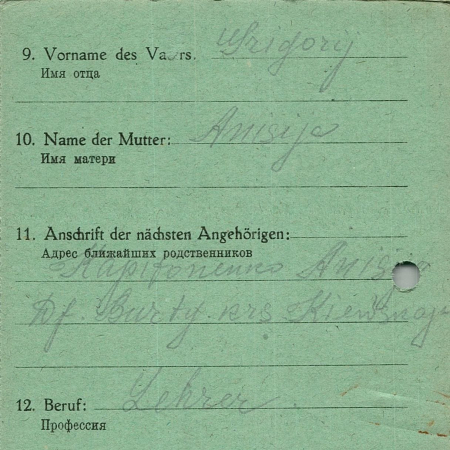 9. Vorname des Vaters: Grigory
Имя отца
10. Name der Mutter: Anisija
Имя матери
11. Anschrift der nächsten Angehörigen:
Адрес ближайших родственников
Anisija
Df. Burty krs
12. Beruf: Lehrer
Профессия